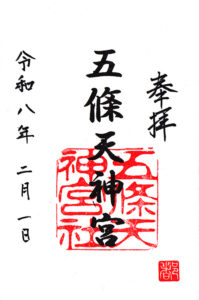 奉拝
五條天神宮
令和八年 二月一日
五條天
神宮社